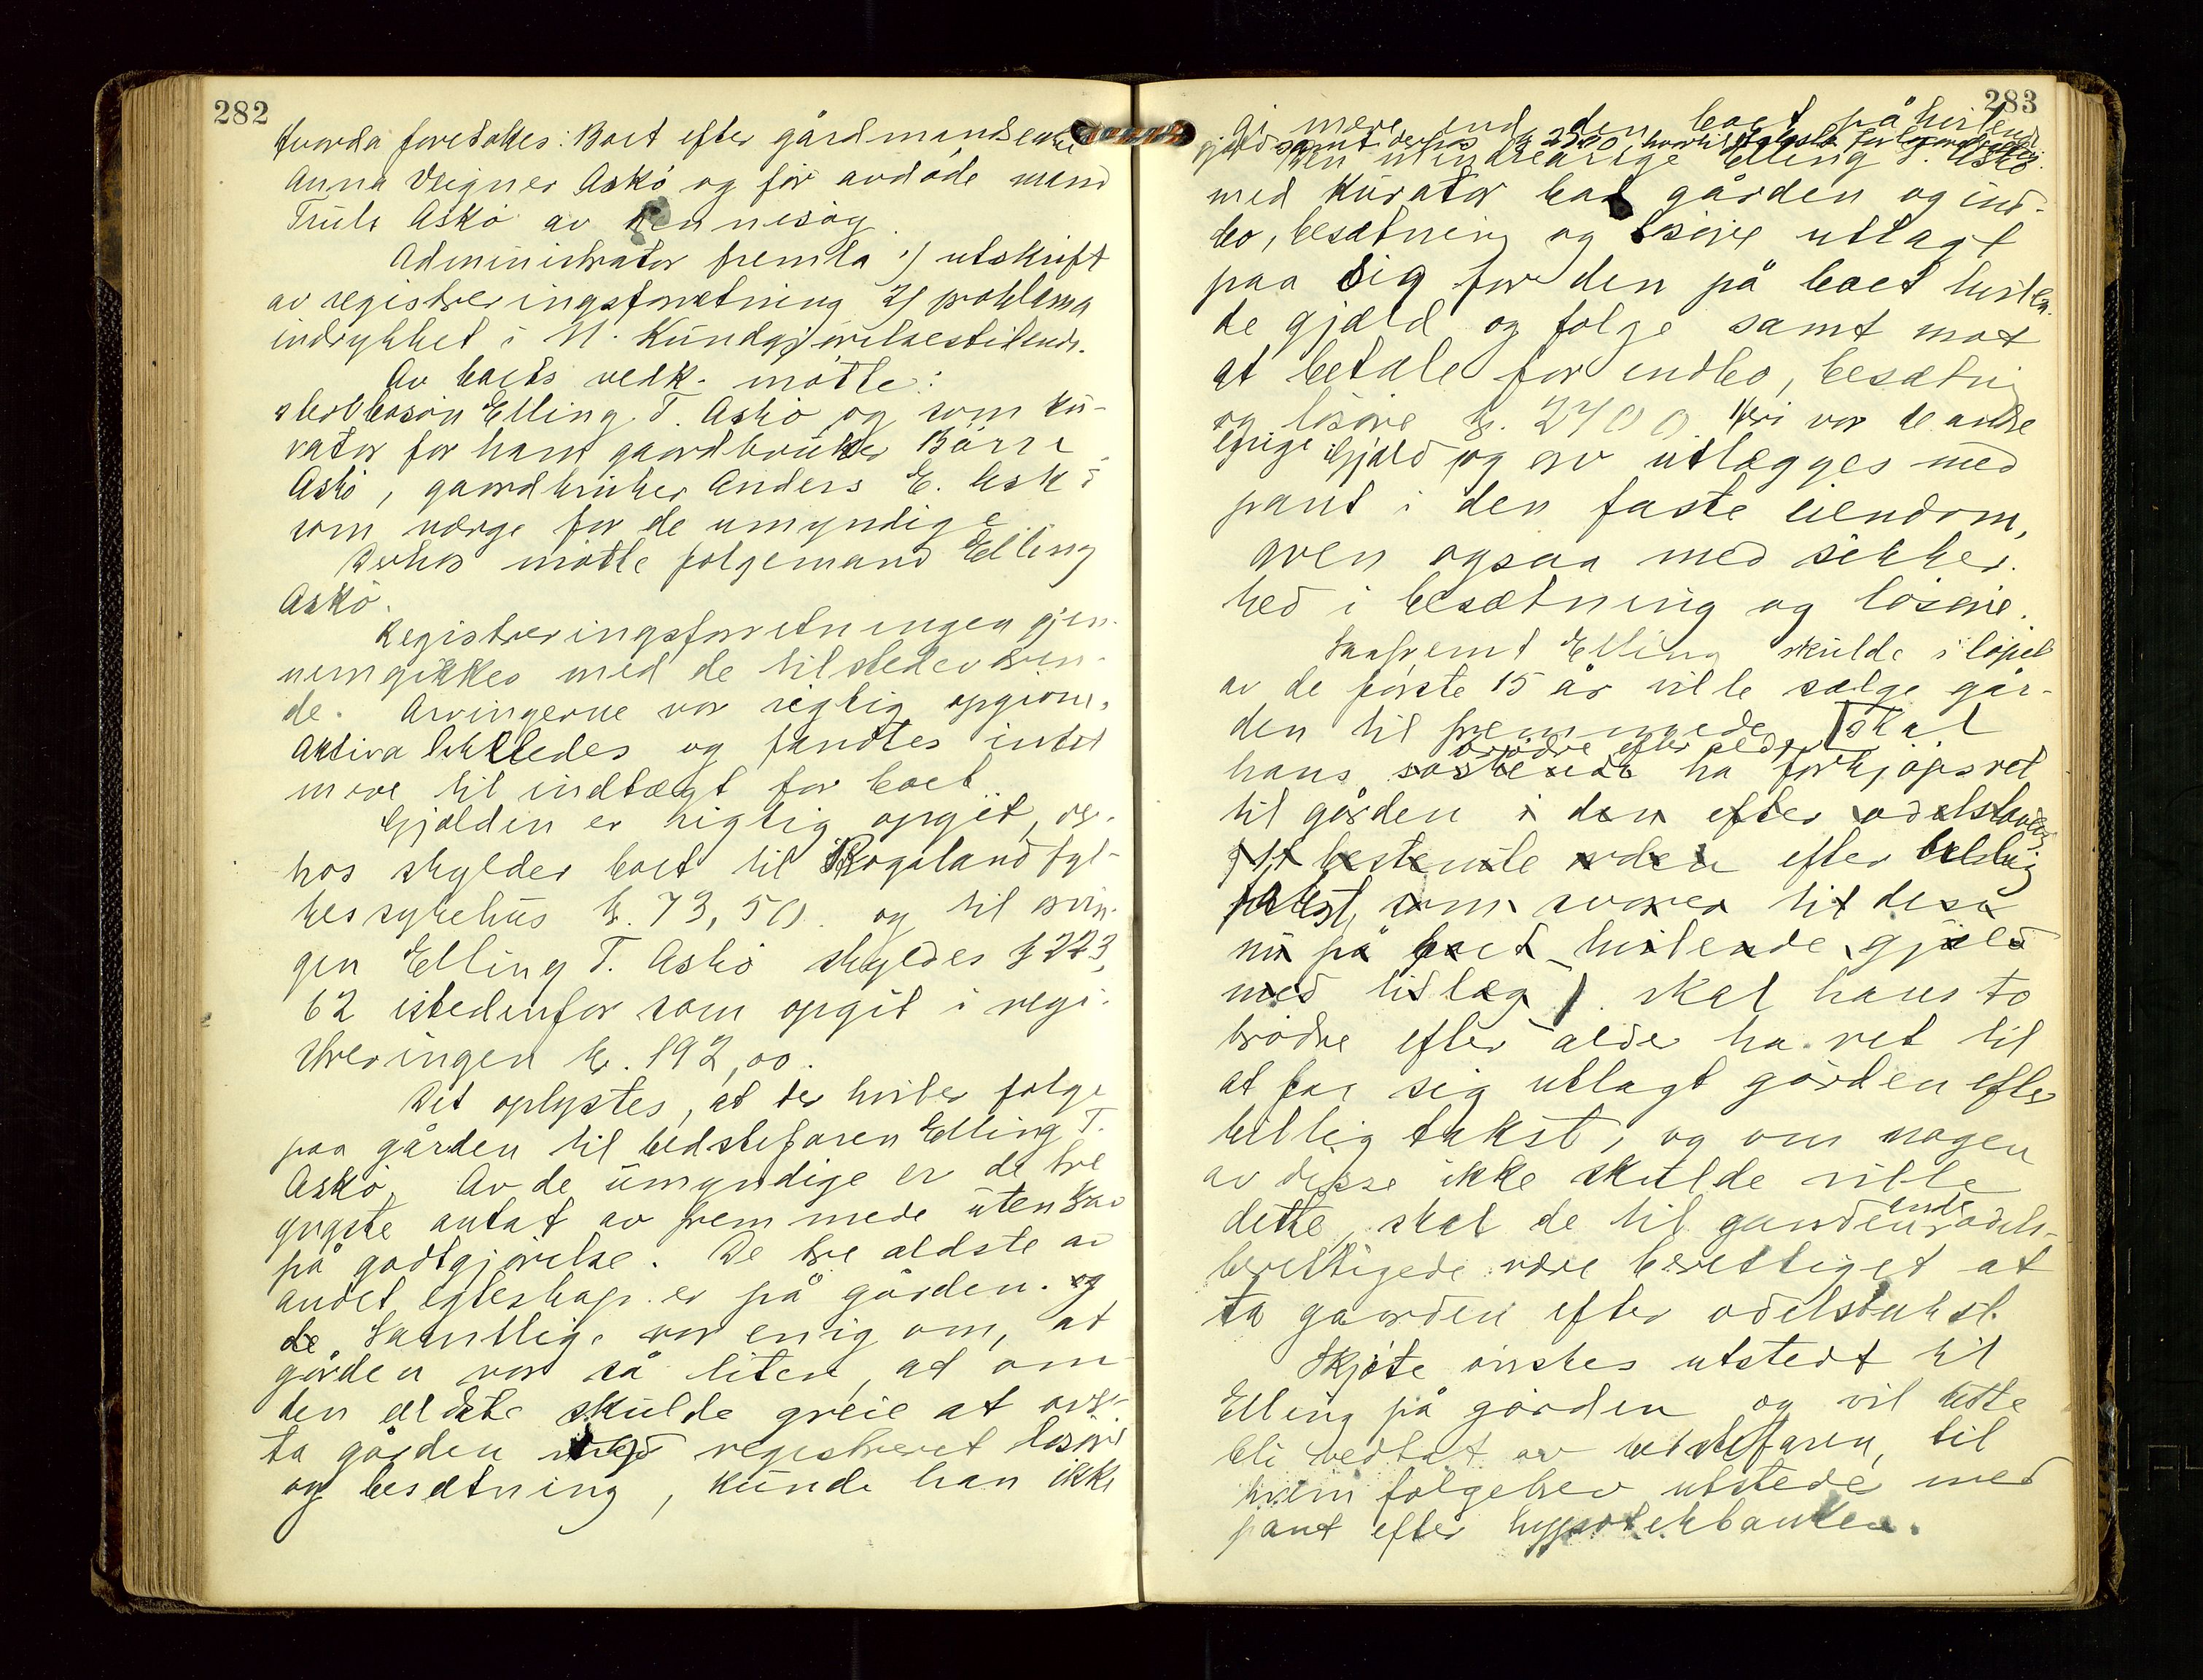 282
Hvorda foretokes: Boet efter gårdmandsenke
Anna Veigner Askö og för avdöde mand
Truls Askö av Rennesöy.
Administrator fremla 1) utskrift
av registreringsforretning 2) proklama
indrykket i N. Kundgjörelsestidende.
Av boets vedk. mötte:
sterbosön Elling T. Askö og som ku-
rator for ham gaardbruker Börre
Askö, gaardbruker Anders E. Askö
som værge for de umyndige
Derhos mötte folgemand Elling
Askö.
Registreringsforretningen gjen-
nemgikkes med de tilstedeværen-
de. Arvingerne var rigtig opgivne.
Aktiva likeledes og fandtes intet
mere til indtægt for boet.
Gjælden er rigtig opgit, der-
hos skylder boet til Rogaland fyl-
kessykehus kr. 73,50 og til arvin-
gen Elling T. Askö skyldes kr 223,
62 istedenfor som opgit i regi-
streringen kr. 192,00.
Det oplystes, at der hviler folge
paa gården til bedstefaren Elling T.
Askö. Av de umyndige er de tre
yngste antat av fremmede uten krav
på godtgjörelse. De tre ældste av
andet egteskap er på gården. og
de Samtlige var enig om, at
gården var så liten, at om
den ældste skulde greie at over-
ta gården med registreret lösöre
og besætning, kunde han ikke
283
gi mere end den boet påhvilende
gjæld samt derhos kr 2700
Den mindreårige Elling T. Askö
med kurator bad gården og ind-
bo, besætning og lösöre utlagt
paa sig for den på boet hvilen-
de gjæld og folge samt mot
at betale for indbo, besætning
og lösöre kr. 2700. Heri var de andre
enige. Gjæld og arv utlægges med
pant i den faste eiendom,
arven ogsaa med sikker-
hed i besætning og lösöre.
Saafremt Elling skulde i löpet
av de förste 15 år ville sælge går-
den til fremmede, [skal
brödre efter alder
hans söskende ha forkjöpsret
til gården i den efter odelslovens
bestemte orden efter billig
takst, som svarer til deså
nu på boet hvilende gjæld
med tillæg]. skal hans to
brödre efter alder ha ret til
at faa sig utlagt gården efter
billig takst, og om nogen
av disse ikke skulde ville
dette, skal de til gaarden odels-
berettigede være berettiget at
ta gaarden efter odelstakst.
Skjöte önskes utstedt til
Elling på gården og vil dette
bli vedtat av bedstefaren, til
hvem folgebrev utstedes med
pant efter hypotekbanken.